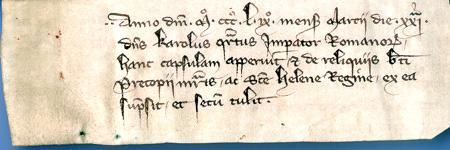 Anno dm̄ . M̊ . ccc̊ . l . ix̊ . mensꝭ Marcij die . xxj .
dn̄s Karolus qr̄tus Imꝑator Romanorꝝ
hanc capsulam apperuit ⁊ de reliquijs bt̄i
Procopij mr̄is , ac sc̄e Helene Regīe , ex ea
sūpsit , et secū tulit .